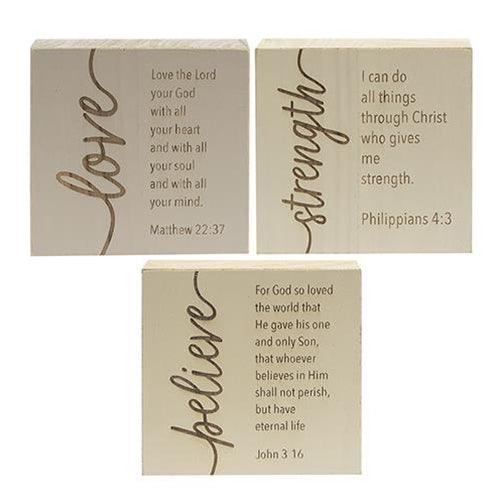 love
Love the Lord
your God
with all
your heart
and with all
your soul
and with all
your mind.
Matthew 22:37
strength
I can do
all things
through Christ
who gives
me
strength.
Philippians 4:3
believe
For God so loved
the world that
He gave his one
and only Son,
that whoever
believes in Him
shall not perish,
but have
eternal life
John 3 16